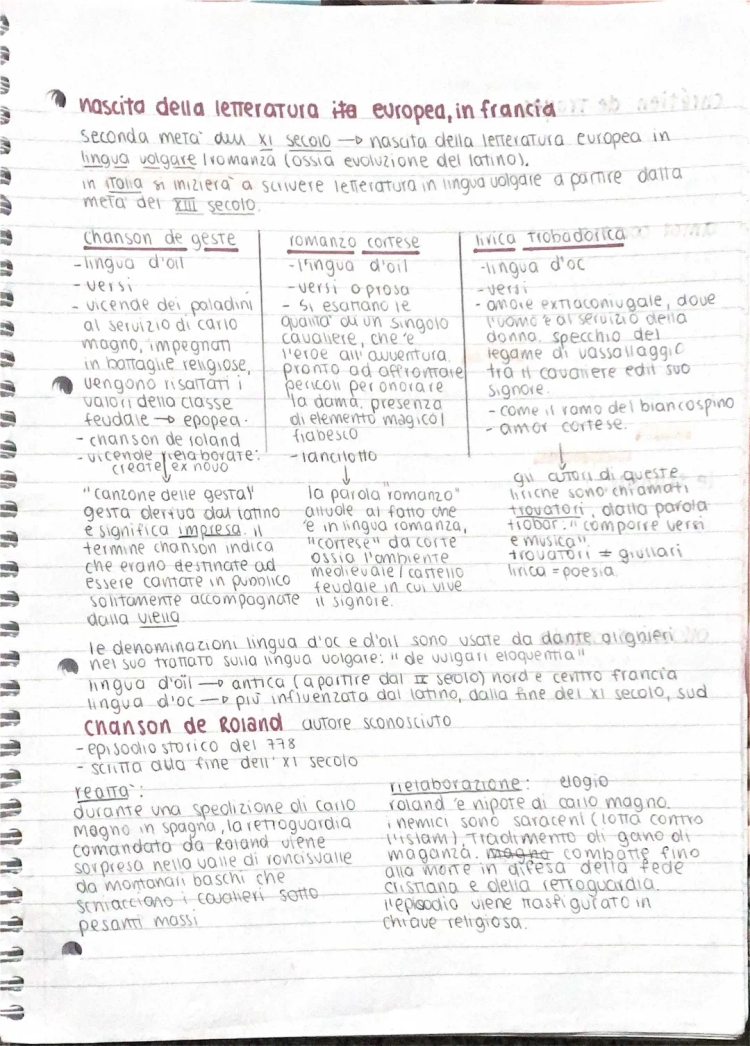 nascita della letteratura ita europea, in francia
seconda metà del XI secolo → nascita della letteratura europea in
lingua volgare / romanza (ossia evoluzione del latino).
in italia si inizierà a scrivere letteratura in lingua volgare a partire dalla
metà del XIII secolo.
chanson de geste
-lingua d'oil
- versi
- vicende dei paladini
al servizio di carlo
magno, impegnati
in battaglie religiose,
vengono risaltati i
valori della classe
feudale → epopea.
- chanson de roland
- vicende rielaborate:
create / ex novo
"canzone delle gesta"
gesta deriva dal latino
e significa impresa. il
termine chanson indica
che erano destinate ad
essere cantate in pubblico
solitamente accompagnate
dalla viella
romanzo cortese
-lingua d'oil
-versi o prosa
- si esaltano le
qualità di un singolo
cavaliere, che è
l'eroe all'avventura.
pronto ad affrontare
pericoli per onorare
la dama. presenza
di elemento magico /
fiabesco
- lancilotto
la parola "romanzo"
allude al fatto che
è in lingua romanza,
"cortese" da corte
ossia l'ambiente
medievale / castello
feudale in cui vive
il signore.
lirica trobadorica
-lingua d'oc
-versi
- amore extraconiugale, dove
l'uomo è al servizio della
donna. specchio del
legame di vassallaggio
tra il cavaliere ed il suo
signore.
- come il ramo del biancospino
- amor cortese.
gli autori di queste
liriche sono chiamati
trovatori, dalla parola
trobar: "comporre versi
e musica".
trovatori ≠ giullari
lirica = poesia.
le denominazioni lingua d'oc e d'oil sono usate da dante alighieri
nel suo trattato sulla lingua volgare: "de vulgari eloquentia"
lingua d'oïl → antica (a partire dal IX secolo) nord e centro francia
lingua d'oc → più influenzata dal latino, dalla fine del XI secolo, sud
chanson de Roland autore sconosciuto
- episodio storico del 778
- scritta alla fine dell' XI secolo
realtà:
durante una spedizione di carlo
magno in spagna, la retroguardia
comandata da Roland viene
sorpresa nella valle di roncisvalle
da montanari baschi che
schiacciano i cavalieri sotto
pesanti massi
rielaborazione: elogio
roland è nipote di carlo magno.
i nemici sono saraceni (lotta contro
l'islam), tradimento di gano di
maganza. magno combatte fino
alla morte in difesa della fede
cristiana e della retroguardia.
l'episodio viene trasfigurato in
chiave religiosa.